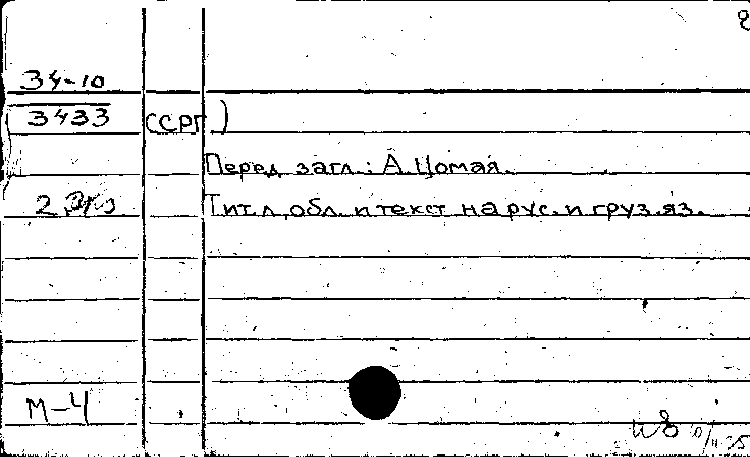 2
34-10
3433 (ССРГ)
Перед загл.: А. Цомая.
2 экз Тит. л., обл. и текст на рус. и груз. яз.
М-4